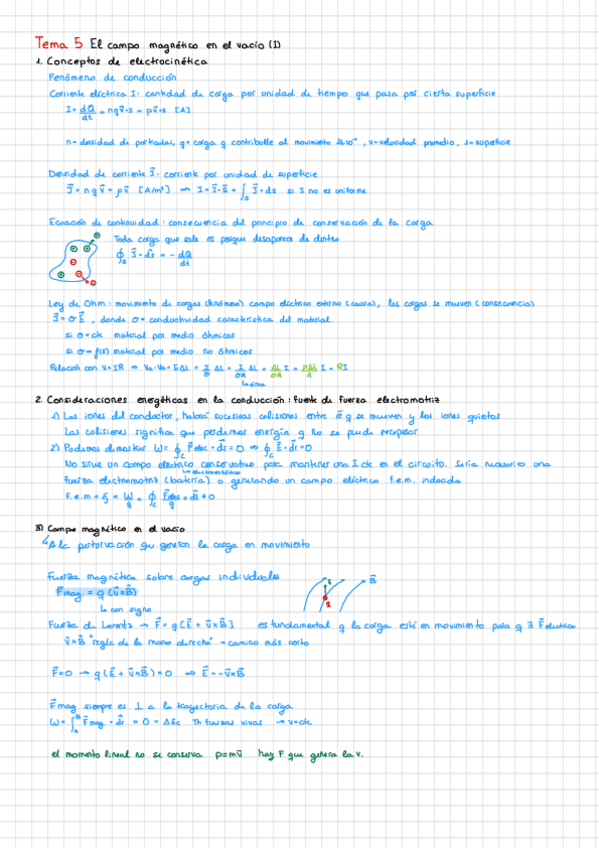 Tema 5 El campo magnético en el vacío (I)
1. Conceptos de electrocinética
Fenómeno de conducción
Corriente eléctrica I: cantidad de carga por unidad de tiempo que pasa por cierta superficie
I = dQ/dt = nqv̄·s = ρv̄·s [A]
n = densidad de partículas, q = carga q contribuye al movimiento, v = velocidad promedio, s = superficie
Densidad de corriente J⃗: corriente por unidad de superficie
J⃗ = nqv̄ = ρv̄ [A/m²] ⇒ I = J⃗·S⃗ = ∫s J⃗·ds si I no es uniforme
Ecuación de continuidad: consecuencia del principio de conservación de la carga
Toda carga que sale es porque desaparece de dentro
∮s J⃗·ds⃗ = - dQ/dt
Ley de Ohm: movimiento de cargas (fenómeno) campo eléctrico externo (causa), las cargas se mueven (consecuencia)
J⃗ = σE⃗, donde σ = conductividad característica del material.
si σ = cte material por medio óhmicos
si σ = f(E) material por medio no óhmicos
Relación con V=IR ⇒ Va-Vb = EΔL = J/σ ΔL = I/σA ΔL = ΔL/σA I = ρΔL/A I = RI
↳ área
2. Consideraciones energéticas en la conducción: fuente de fuerza electromotriz
1) Los iones del conductor, habrá sucesivas colisiones entre ē q se mueven y los iones quietos
Las colisiones significa que perdemos energía q no se puede recuperar
2) Podemos demostrar W = ∮c F⃗elec·dr⃗ = 0 ⇒ ∮c E⃗·dr⃗ = 0
No sirve un campo eléctrico conservativo para mantener una I cte en el circuito. Sería necesario una
↳ electrostático
fuerza electromotriz (batería) o generando un campo eléctrico f.e.m. inducida
F.e.m = ξ = W/q = ∮c F⃗elec/q·dl⃗ ≠ 0
3) Campo magnético en el vacío
↳ A la perturbación que generan la carga en movimiento
Fuerza magnética sobre cargas individuales
F⃗mag = q (v⃗×B⃗)
↳ con signo
B⃗
Fuerza de Lorentz → F⃗ = q[E⃗ + v⃗×B⃗] es fundamental q la carga esté en movimiento para q ∃ F⃗eléctrica
v⃗×B⃗ "regla de la mano derecha" = camino más corto
F⃗=0 → q(E⃗ + v⃗×B⃗)=0 ⇒ E⃗ = -v⃗×B⃗
F⃗mag siempre es ⊥ a la trayectoria de la carga
W = ∫A^B F⃗mag·dr⃗ = 0 = ΔEc Th fuerzas vivas → v=cte
el momento lineal no se conserva p=mv̄ hay F que genera la v.